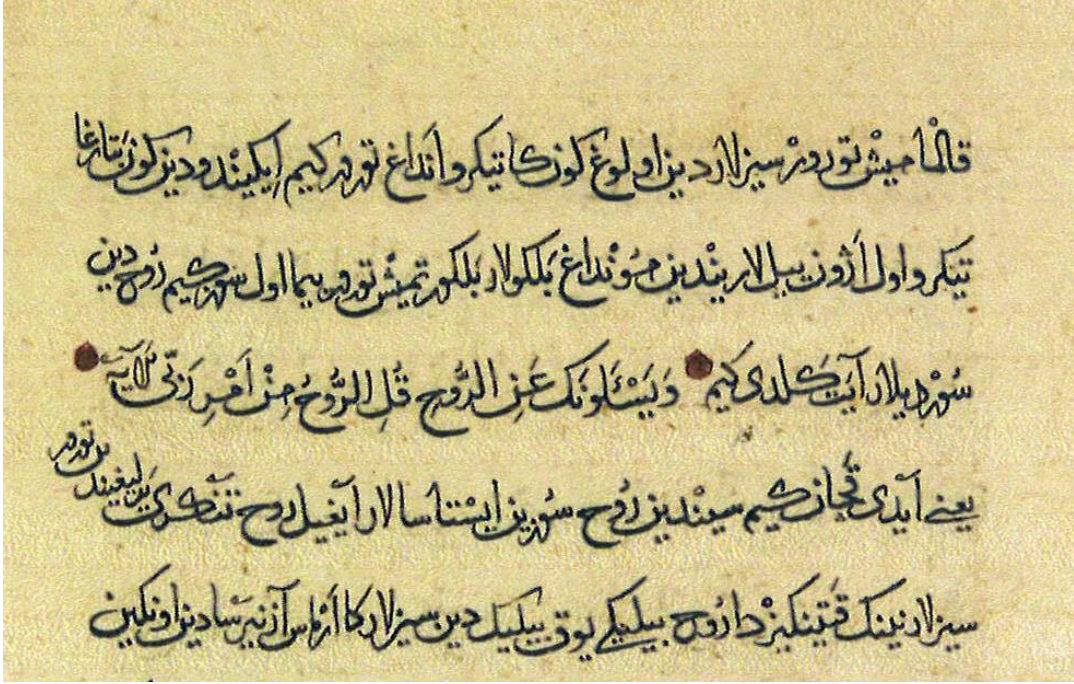 قالماميش تورورْ سيزلاردين اولوغ كون كا تيكرو اَنداغ تورور كيم اِيكينْدودين كون بتارغا
تيكرو اول اَژون ييل لاريندين سُوْنْداغ بَلكولار بَلكورتميش تورور ييما اول سوركيم رُوح دين
سُوْرديلار آيَت كَلدى كيم وَيَسْئَلُونَكَ عَنِ الرُّوحِ قُلِ الرُّوحُ مِنْ اَمْرِ رَبّى اَلآيَة
يعنے آيدى قَچان كيم سيندين رُوح سُورين ايستاسالار آيغيل روح تنكرى يَرليغيندين تورور
سيزلارنينك قَتينكيزْدا رُوح بيليكے يوق بيليكدين سيزلاركا اَرماس آز نيرسادين اونكين